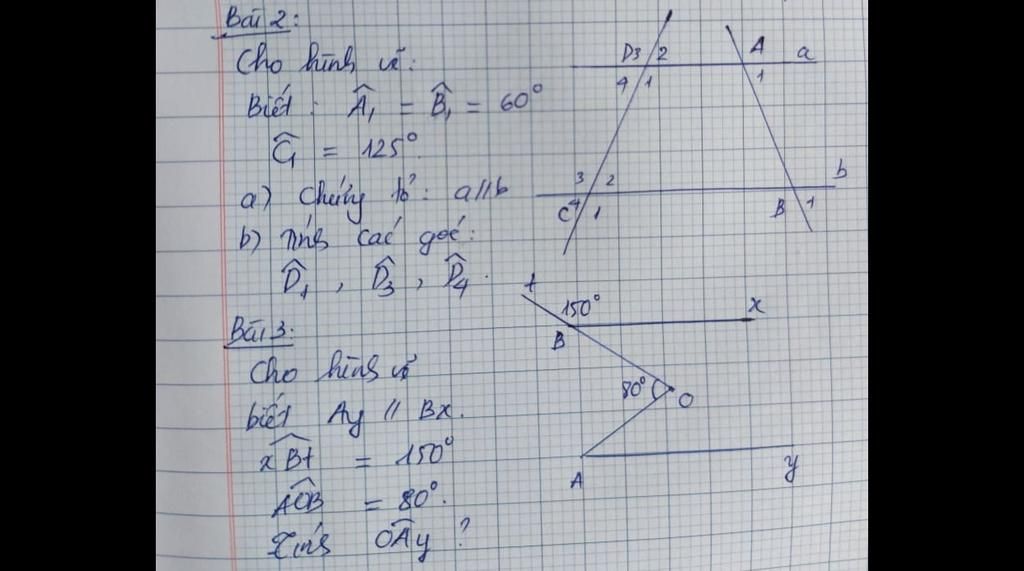 Bài 2:
Cho hình vẽ:
Biết: Â₁ = B̂₁ = 60°
Ĉ₁ = 125°.
a) Chứng tỏ: a//b
b) Tính các góc:
D̂₁, D̂₃, D̂₄.
D 3 2 A a
4 1 1
3 2 b
C 4 1 B 1
Bài 3:
Cho hình vẽ
biết Ay // Bx.
xBt = 150°
AOB = 80°.
Tính OAy ?
t 150° x
B
80° O
A y